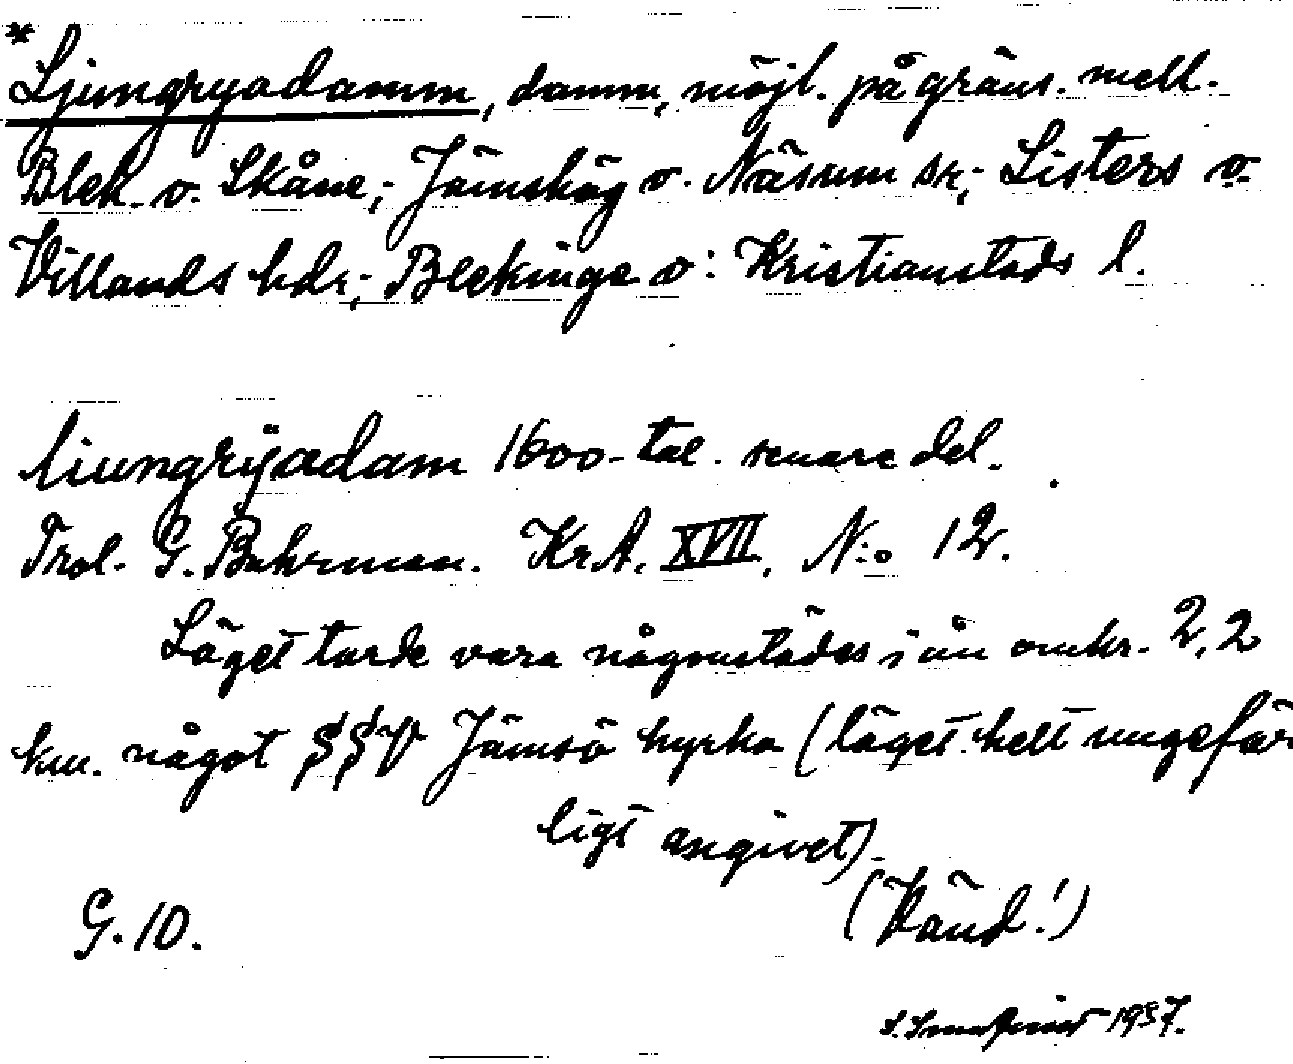 *Ljungryadamm, damm, möjl. på gräns. mell.
Blek. o. Skåne; Jämshög o. Näsum sn; Listers o.
Villands hdr; Blekinge o. Kristianstads l.
liungrÿadam 1600-tal. senare del.
Trol. G. Buhrman. KrA. XVII. N:o 12.
Läget torde vara någonstädes i ån omkr. 2,2
km. något SSV Jämsö kyrka (läget helt ungefär
ligt angivet).
(Vänd!)
G. 10.
1937.